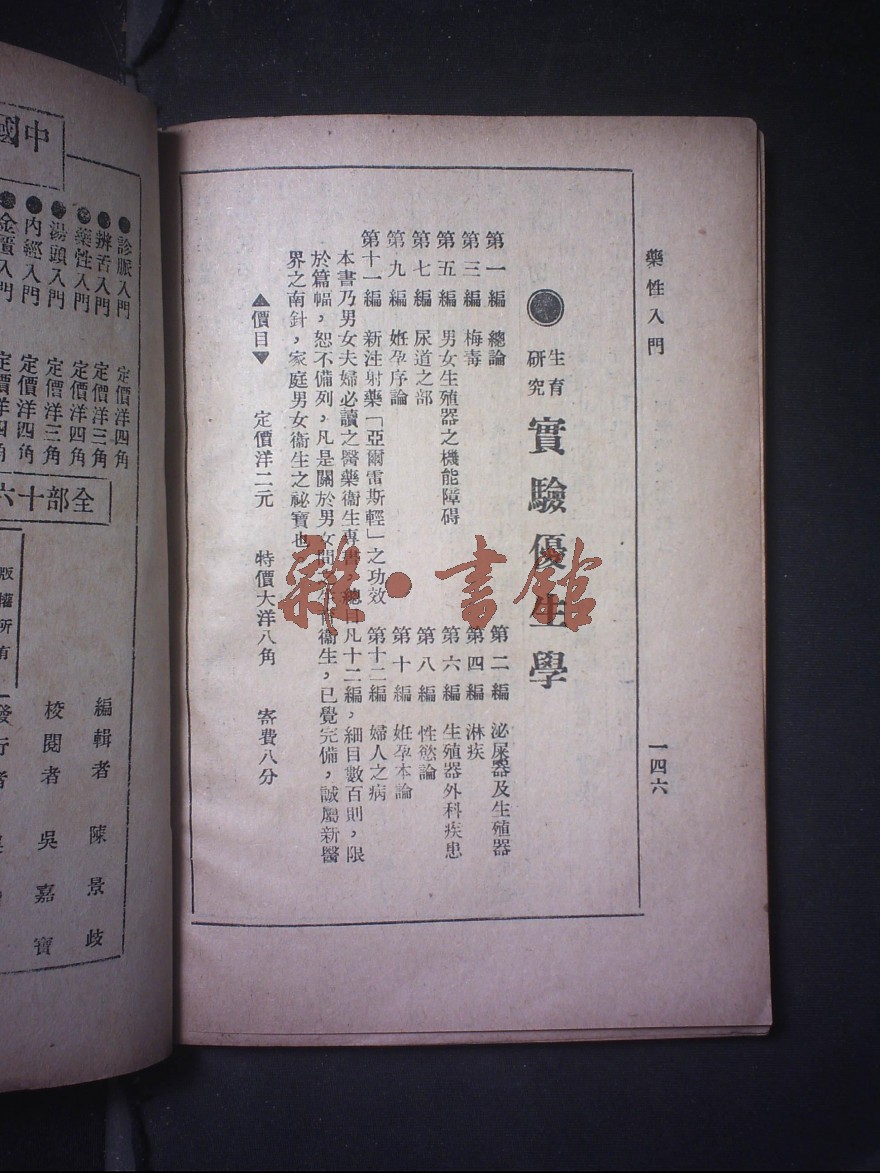 藥性入門
一四六
生育
研究
實驗優生學
第一編 總論
第二編 泌尿器及生殖器
第三編 梅毒
第四編 淋疾
第五編 男女生殖器之機能障碍
第六編 生殖器外科疾患
第七編 尿道之部
第八編 性慾論
第九編 姙孕序論
第十編 姙孕本論
第十一編 新注射藥「亞爾雷斯輕」之功效
第十二編 婦人之病
本書乃男女夫婦必讀之醫藥衞生專書 總目凡十二編，細目數百則，限
於篇幅，恕不備列，凡是關於男女間 衞生，已覺完備，誠屬新醫
界之南針，家庭男女衞生之祕寶也
▲價目▼ 定價洋二元 特價大洋八角 寄費八分
雜·書館
中國
診脈入門 定價洋四角
辨舌入門 定價洋三角
藥性入門 定價洋四角
湯頭入門 定價洋三角
內經入門 定價洋四角
金匱入門 定價洋四角
全部十六
版權所有
編輯者 陳景歧
校閱者 吳嘉寶
發行者